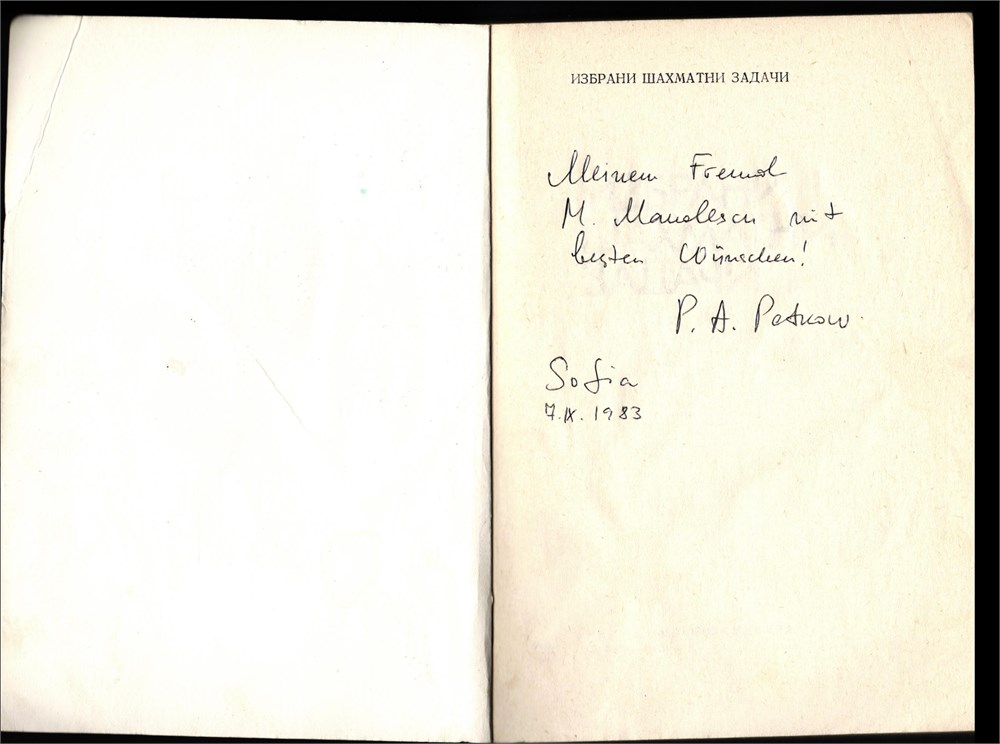 ИЗБРАНИ ШАХМАТНИ ЗАДАЧИ
Meinem Freund
M. Manolescu mit
besten Wünschen!
P. A. Petkow.
Sofia
7.IX.1983